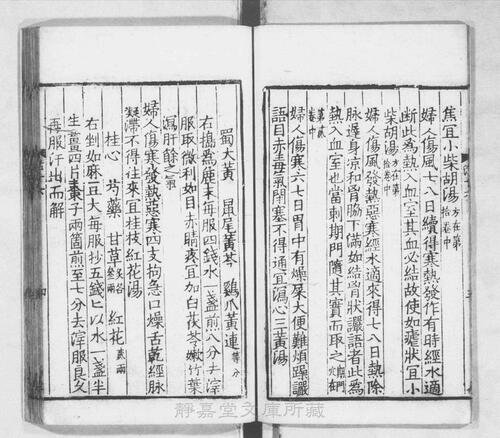 焦宜小柴胡湯方在第拾卷中
婦人傷風七八日續得寒熱發作有時經水適
斷此為熱入血室其血必結故使如瘧狀宜小
柴胡湯方在第拾卷中
婦人傷風發熱惡寒經水適來得七八日熱除
脉遲身涼和胷脇下滿如結胷狀讝語者此為
熱入血室也當刺期門隨其實而取之
婦人傷寒六七日胃中有燥屎大便難煩躁讝
語目赤毒氣閉塞不得通宜瀉心三黃湯
蜀大黃 鼠尾黃芩 雞爪黃連等分
右擣為麄末每服四錢水一盞煎八分去滓
服取微利如目赤睛疼宜加白茯苓嫩竹葉
瀉肝餘之氣
婦人傷寒發熱惡寒四支拘急口燥舌乾經脉
凝滯不得往來宜桂枝紅花湯
桂心 芍藥 甘草炙各貳兩 紅花壹兩
右剉如麻豆大每服抄五錢匕以水一盞半
生薑四片棗子兩箇煎至七分去滓服良久
再服汗出而解
靜嘉堂文庫所藏